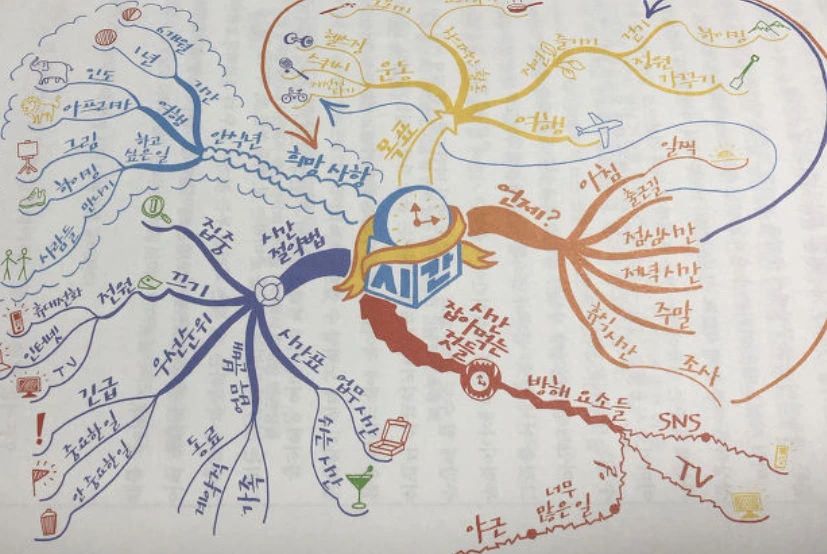 시간
희망 사항
안식년
기간
6개월
1년
여행
인도
아프리카
하고
싶은 일
그림
하이킹
만나기
사람들
목표
운동
헬스장
스쿼시
자연 즐기기
걷기
하이킹
정원
가꾸기
여행
언제?
아침
일찍
출근길
점심시간
저녁 시간
주말
휴식 시간
조사
시간
잡아먹는
것들
방해 요소들
SNS
TV
일
너무
많은 일
야근
시간
절약법
집중
끄기
전원
휴대전화
인터넷
TV
우선순위
긴급
중요한 일
안 중요한 일
업무 분배
동료
가족
시간표
업무 시간
쉬는 시간